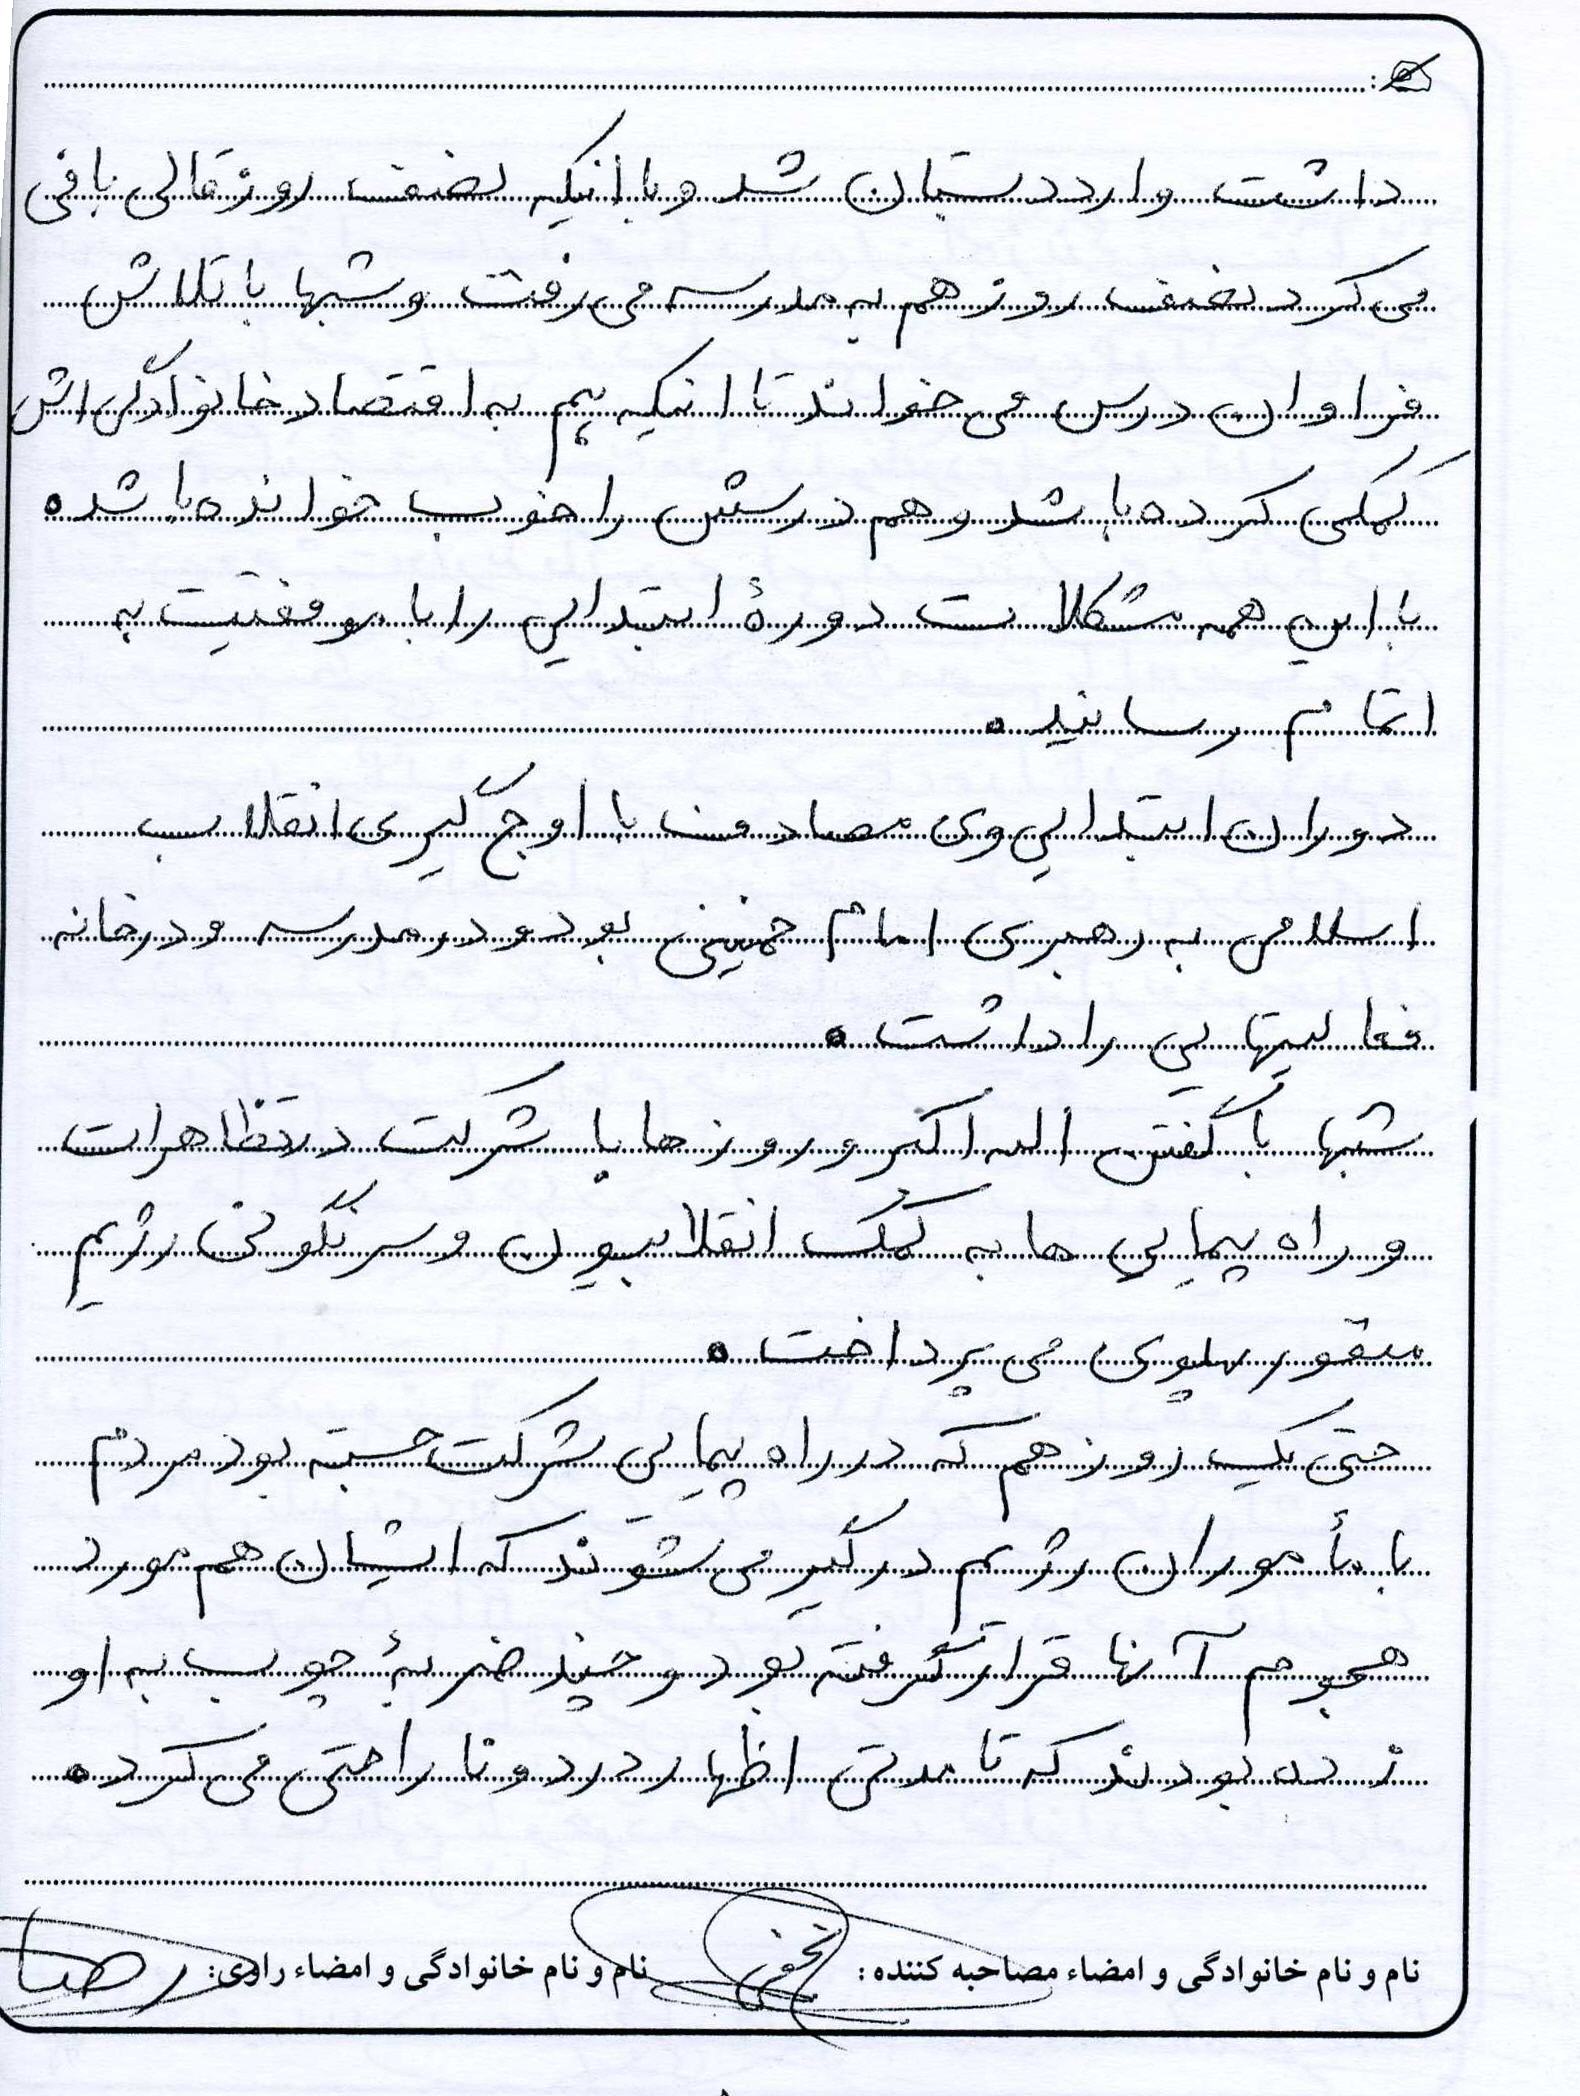 داشت وارد دبستان شد و با اینکه نصف روز قالی بافی
می کرد نصف روز هم به مدرسه می رفت و شبها با تلاش
فراوان درس می خواند تا اینکه هم به اقتصاد خانوادگی اش
کمکی کرده باشد و هم درسش را خوب خوانده باشد.
با این همه مشکلات دورهٔ ابتدایی را با موفقیت به
اتمام رسانید.
دوران ابتدایی وی مصادف با اوج گیری انقلاب
اسلامی به رهبری امام خمینی بود و در مدرسه و در خانه
فعالیتهایی را داشت.
شبها با گفتن الله اکبر و روزها با شرکت در تظاهرات
و راه پیمایی ها به کمک انقلابیون و سرنگونی رژیم
منفور پهلوی می پرداخت.
حتی یک روز هم که در راه پیمایی شرکت جسته بود مردم
با مأموران رژیم درگیر می شوند که ایشان هم مورد
هجوم آنها قرار گرفته بود و چند ضربهٔ چوب به او
زده بودند که تا مدتی اظهار درد و ناراحتی می کرد.
نام و نام خانوادگی و امضاء مصاحبه کننده : نام و نام خانوادگی و امضاء راوی: